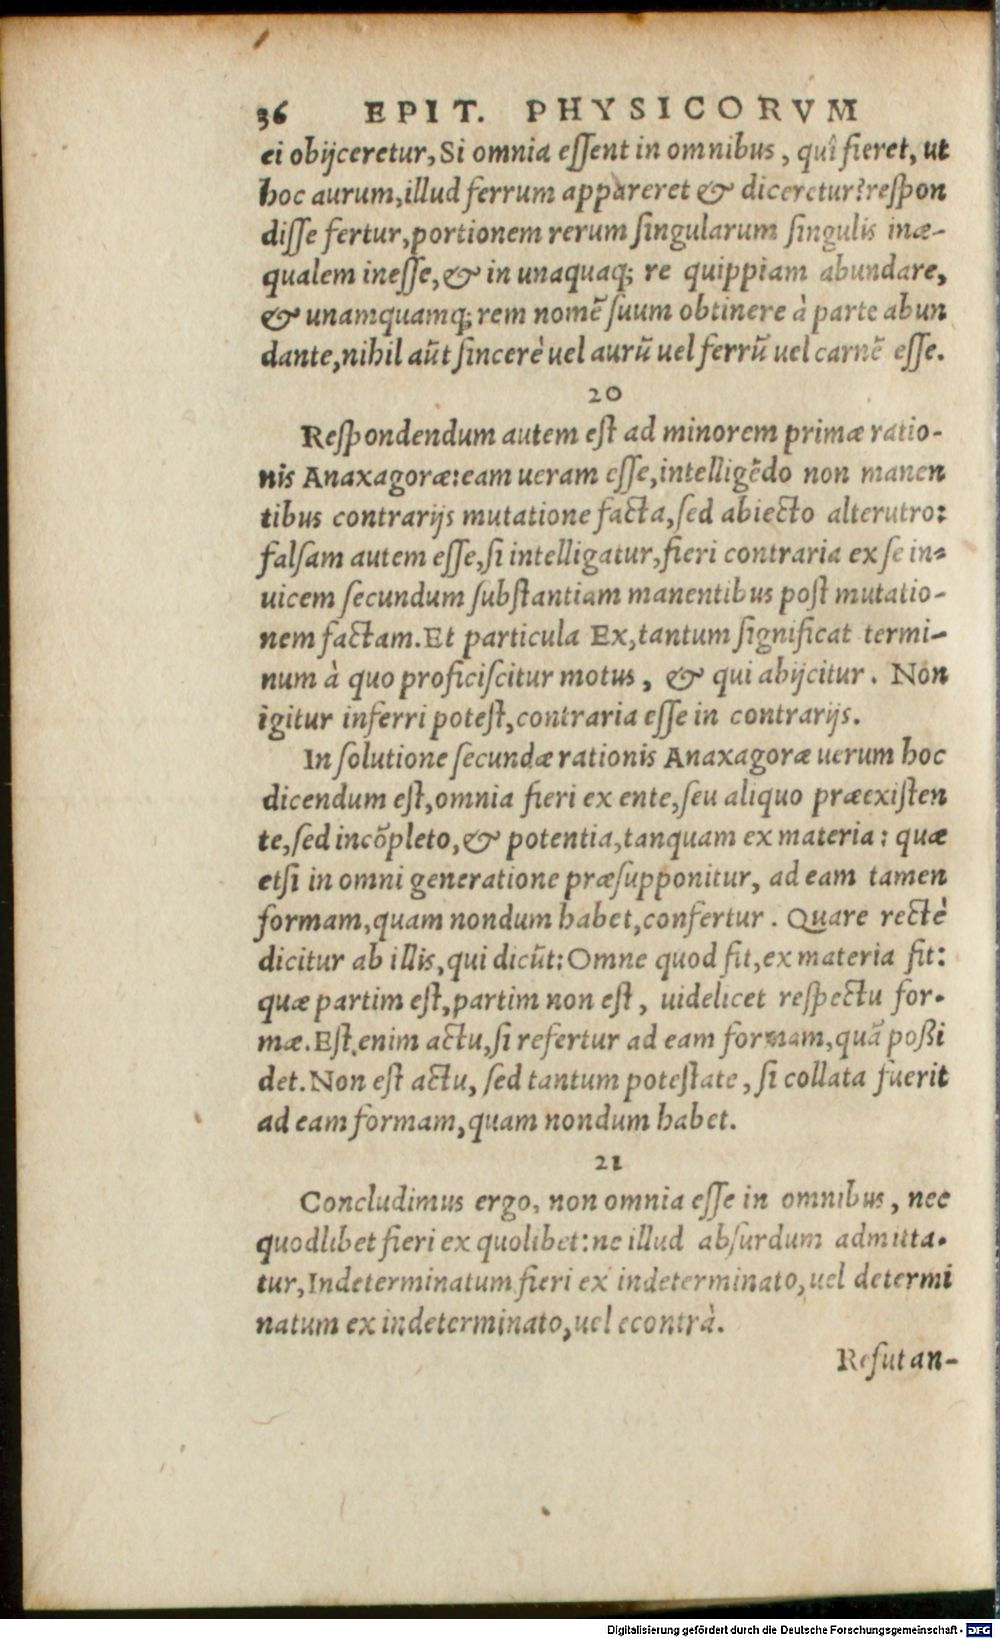 36 EPIT. PHYSICORVM
ei obijceretur, Si omnia eſſent in omnibus, quî fieret, ut
hoc aurum, illud ferrum appareret & diceretur? reſpon
diſſe fertur, portionem rerum ſingularum ſingulis inæ-
qualem ineſſe, & in unaquaq; re quippiam abundare,
& unamquamq; rem nomē ſuum obtinere à parte abun
dante, nihil aūt ſincerè uel aurū uel ferrū uel carnē eſſe.
20
Reſpondendum autem eſt ad minorem primæ ratio-
nis Anaxagoræ: eam ueram eſſe, intelligēdo non manen
tibus contrarijs mutatione facta, ſed abiecto alterutro:
falſam autem eſſe, ſi intelligatur, fieri contraria ex ſe in-
uicem ſecundum ſubſtantiam manentibus poſt mutatio-
nem factam. Et particula Ex, tantum ſignificat termi-
num à quo proficiſcitur motus, & qui abijcitur. Non
igitur inferri poteſt, contraria eſſe in contrarijs.
In ſolutione ſecundæ rationis Anaxagoræ uerum hoc
dicendum eſt, omnia fieri ex ente, ſeu aliquo præexiſten
te, ſed incōpleto, & potentia, tanquam ex materia: quæ
etſi in omni generatione præſupponitur, ad eam tamen
formam, quam nondum habet, confertur. Quare rectè
dicitur ab illis, qui dicūt: Omne quod fit, ex materia fit:
quæ partim eſt, partim non eſt, uidelicet reſpectu for-
mæ. Eſt enim actu, ſi refertur ad eam formam, quā poßi
det. Non eſt actu, ſed tantum poteſtate, ſi collata fuerit
ad eam formam, quam nondum habet.
21
Concludimus ergo, non omnia eſſe in omnibus, nec
quodlibet fieri ex quolibet: ne illud abſurdum admitta-
tur, Indeterminatum fieri ex indeterminato, uel determi
natum ex indeterminato, uel econtrà.
Refutan-
Digitalisierung gefördert durch die Deutsche Forschungsgemeinschaft - DFG